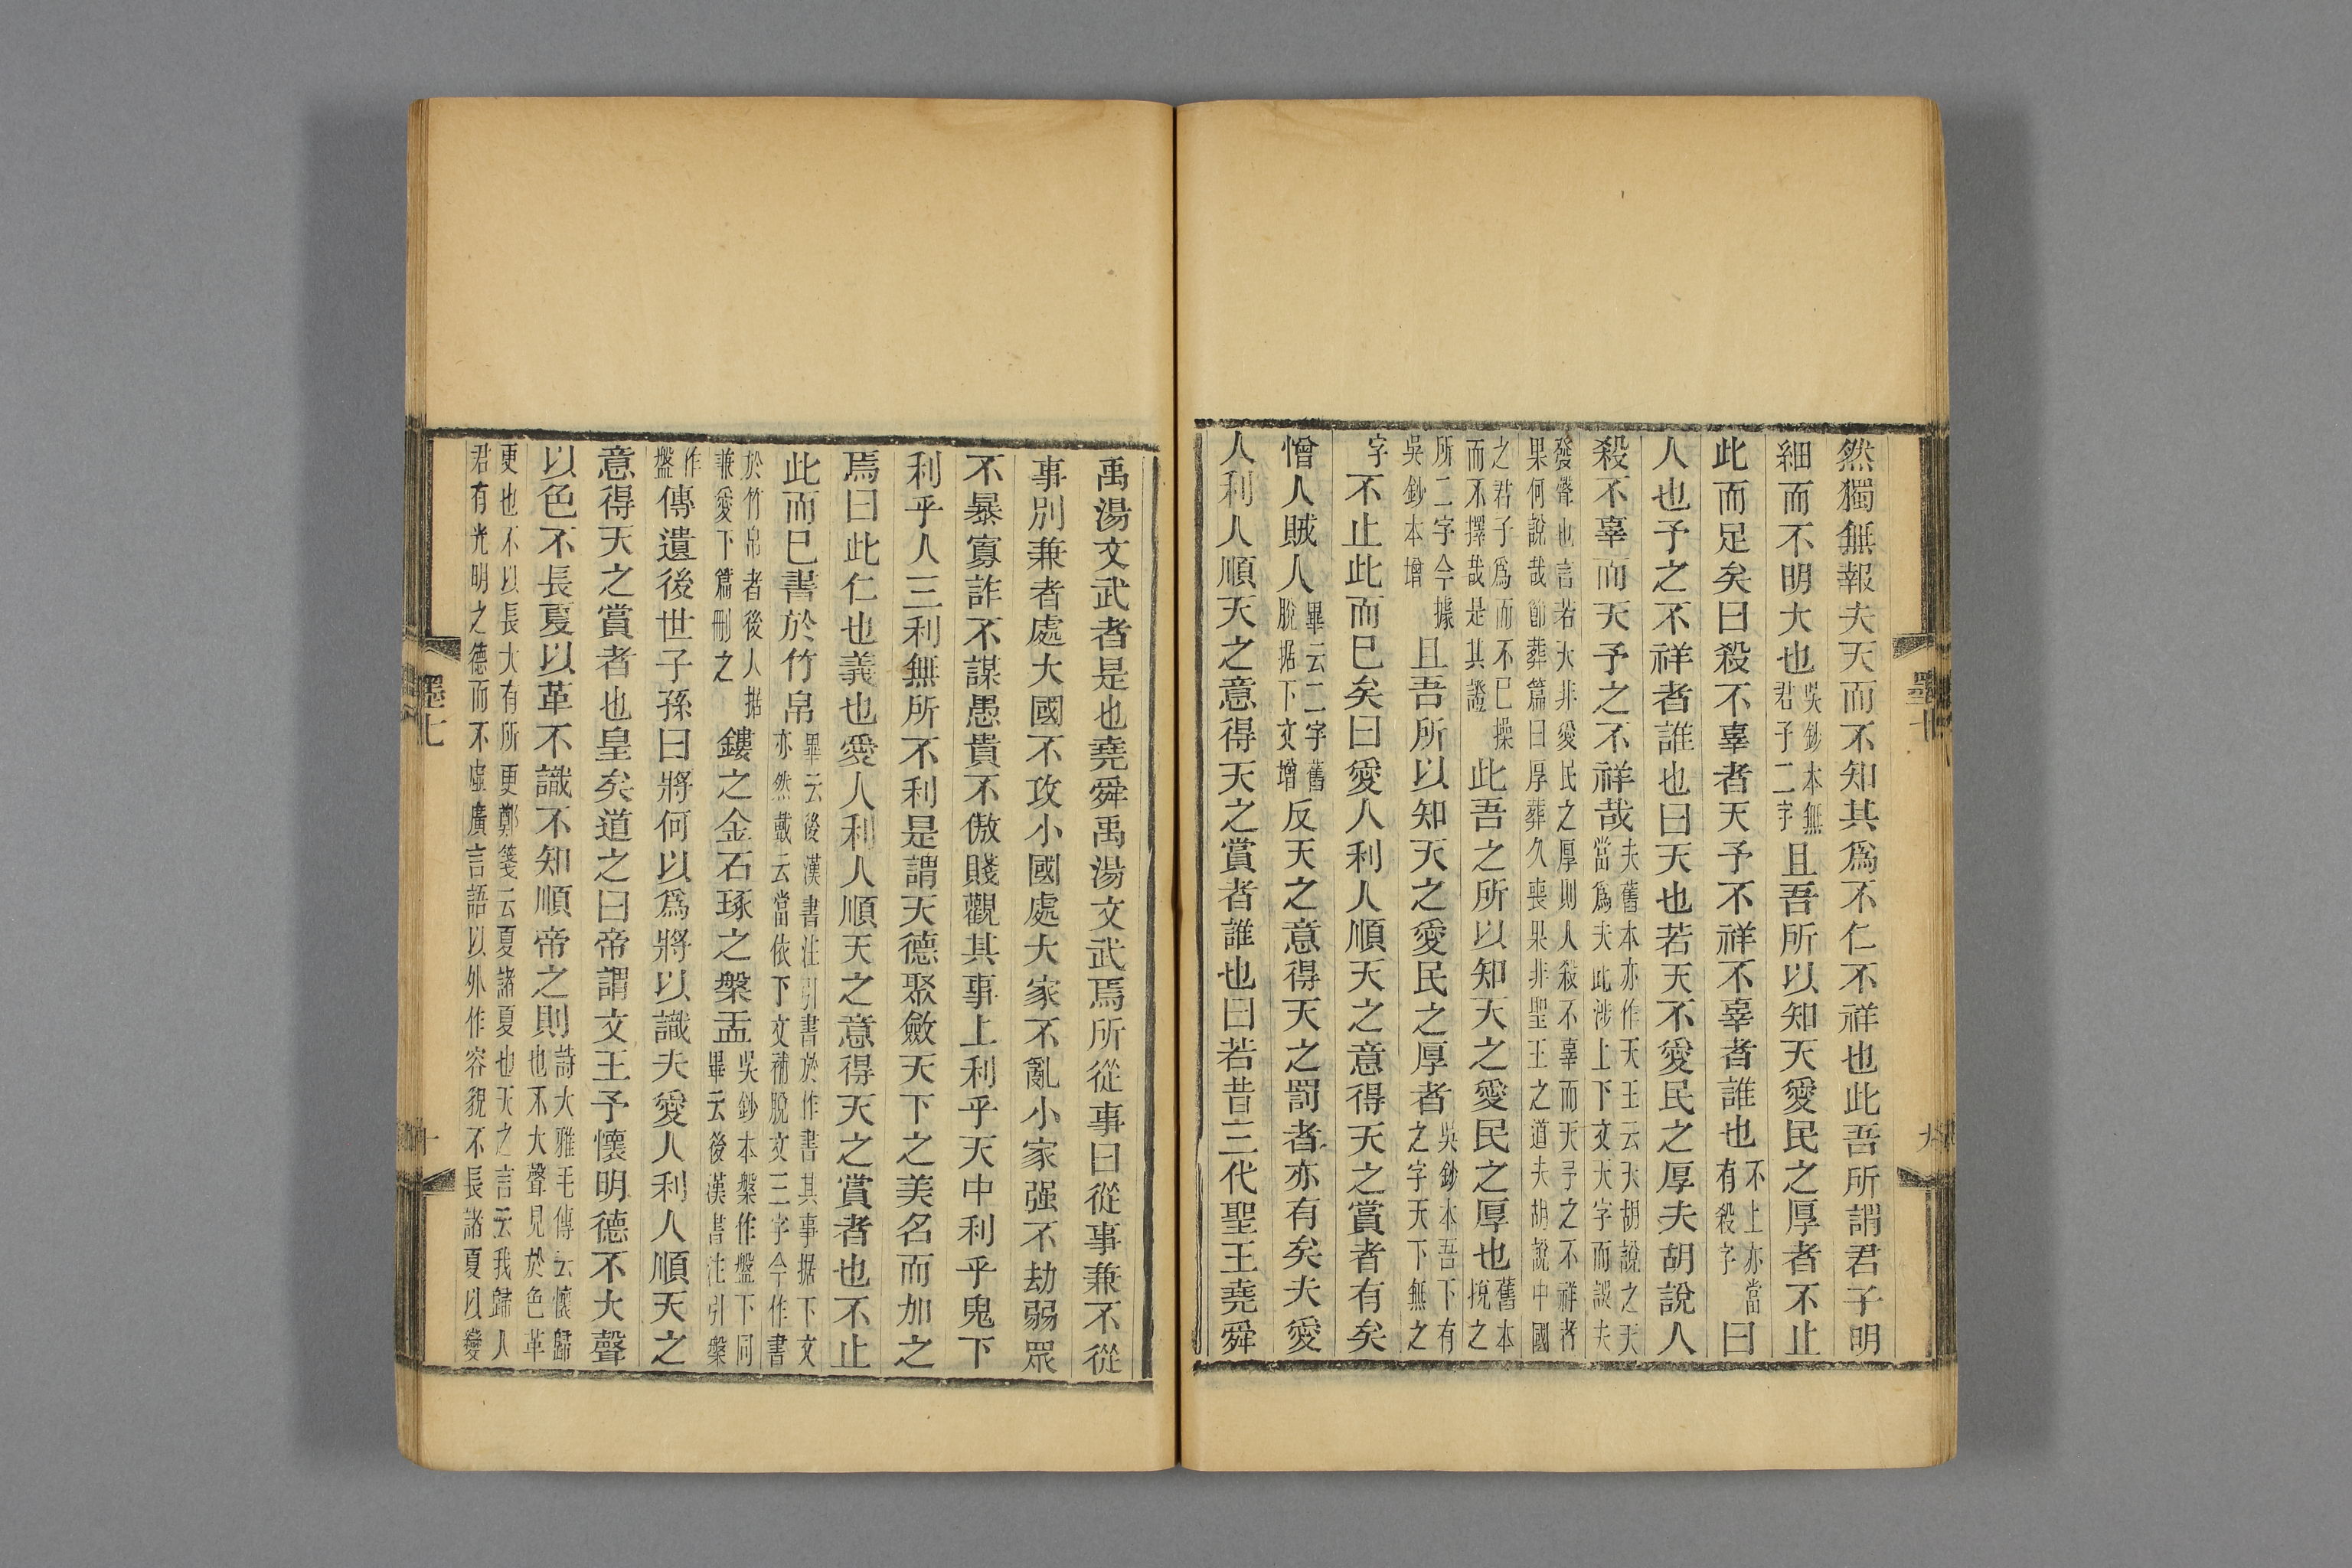 然獨無報夫天而不知其爲不仁不祥也此吾所謂君子明
細而不明大也吳鈔本無君子二字且吾所以知天愛民之厚者不止
此而足矣曰殺不辜者天予不祥不辜者誰也不上亦當有殺字曰
人也予之不祥者誰也曰天也若天不愛民之厚夫胡說人
殺不辜而天予之不祥哉夫舊本亦作天王云天胡說之天當爲夫此涉上下文天字而誤夫
發聲也言若天非愛民之厚則人殺不辜而天予之不祥者果何說哉節葬篇曰厚葬久喪果非聖王之道夫胡說中國
之君子爲而不已操而不擇哉是其證此吾之所以知天之愛民之厚也舊本挩之
所二字今據吳鈔本增且吾所以知天之愛民之厚者吳鈔本吾下有之字天下無之
字不止此而已矣曰愛人利人順天之意得天之賞者有矣
憎人賊人畢云二字舊脫据下文增反天之意得天之罰者亦有矣夫愛
人利人順天之意得天之賞者誰也曰若昔三代聖王堯舜
墨七
九
禹湯文武者是也堯舜禹湯文武焉所從事曰從事兼不從
事別兼者處大國不攻小國處大家不亂小家强不劫弱眾
不暴寡詐不謀愚貴不傲賤觀其事上利乎天中利乎鬼下
利乎人三利無所不利是謂天德聚斂天下之美名而加之
焉曰此仁也義也愛人利人順天之意得天之賞者也不止
此而已書於竹帛畢云後漢書注引書於作書其事据下文亦然戴云當依下文補脫文三字今作書
於竹帛者後人据兼愛下篇刪之鏤之金石琢之槃盂吳鈔本槃作盤下同畢云後漢書注引槃
作盤傳遺後世子孫曰將何以爲將以識夫愛人利人順天之
意得天之賞者也皇矣道之曰帝謂文王予懷明德不大聲
以色不長夏以革不識不知順帝之則詩大雅毛傳云懷歸也不大聲見於色革
更也不以長大有所更鄭箋云夏諸夏也天之言云我歸人君有光明之德而不虛廣言語以外作容貌不長諸夏以變
墨七
十